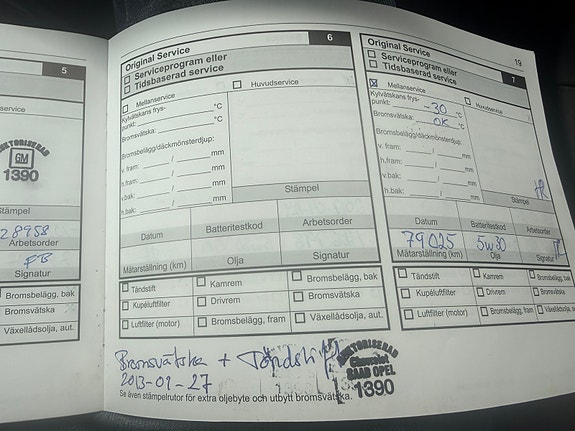 5
service
AUKTORISERAD
GM
1390
Stämpel
28958
Arbetsorder
FB
Signatur
Bromsbelägg, bak
Bromsvätska
Växellådsolja, aut.
Original Service
6
Serviceprogram eller
Tidsbaserad service
Mellanservice
Huvudservice
Kylvätskans frys-
punkt: °C
Bromsvätska: °C
Bromsbelägg/däckmönsterdjup:
v. fram: / mm
h.fram: / mm
v.bak: / mm
h.bak: / mm
Stämpel
Datum
Batteritestkod
Arbetsorder
Mätarställning (km)
Olja
Signatur
Tändstift
Kamrem
Bromsbelägg, bak
Kupéluftfilter
Drivrem
Bromsvätska
Luftfilter (motor)
Bromsbelägg, fram
Växellådsolja, aut.
Bromsvätska + Tändstift
2013-01-27
AUKTORISERAD
Chevrolet
SAAB OPEL
1390
Se även stämpelrutor för extra oljebyte och utbytt bromsvätska.
19
Original Service
7
Serviceprogram eller
Tidsbaserad service
Mellanservice
Huvudservice
Kylvätskans frys-
punkt: -30 °C
Bromsvätska: OK °C
Bromsbelägg/däckmönsterdjup:
v. fram: / mm
h.fram: / mm
v.bak: / mm
h.bak: / mm
Stämpel
Datum
Batteritestkod
Arbetsorder
79025
5w30
Mätarställning (km)
Olja
Signatur
Tändstift
Kamrem
Bromsbelägg, bak
Kupéluftfilter
Drivrem
Bromsvätska
Luftfilter (motor)
Bromsbelägg, fram
Växellådsolja